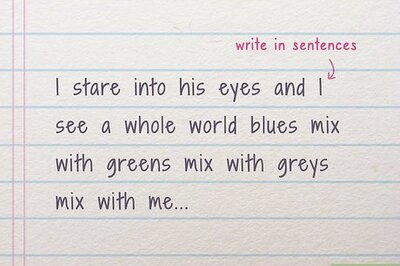 write in sentences
I stare into his eyes and I
see a whole world blues mix
with greens mix with greys
mix with me...